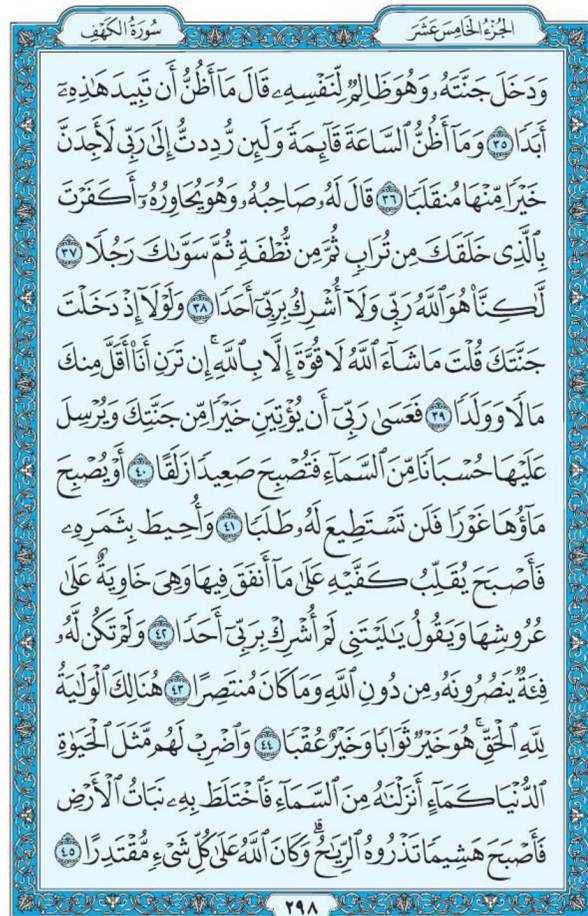 الجزء الخامس عشر
سورة الكهف
وَدَخَلَ جَنَّتَهُۥ وَهُوَ ظَالِمٌ لِّنَفْسِهِۦ قَالَ مَآ أَظُنُّ أَن تَبِيدَ هَٰذِهِۦٓ
أَبَدًا ٣٥ وَمَآ أَظُنُّ ٱلسَّاعَةَ قَآئِمَةً وَلَئِن رُّدِدتُّ إِلَىٰ رَبِّى لَأَجِدَنَّ
خَيْرًا مِّنْهَا مُنقَلَبًا ٣٦ قَالَ لَهُۥ صَاحِبُهُۥ وَهُوَ يُحَاوِرُهُۥٓ أَكَفَرْتَ
بِٱلَّذِى خَلَقَكَ مِن تُرَابٍ ثُمَّ مِن نُّطْفَةٍ ثُمَّ سَوَّىٰكَ رَجُلًا ٣٧
لَّٰكِنَّا۠ هُوَ ٱللَّهُ رَبِّى وَلَآ أُشْرِكُ بِرَبِّىٓ أَحَدًا ٣٨ وَلَوْلَآ إِذْ دَخَلْتَ
جَنَّتَكَ قُلْتَ مَا شَآءَ ٱللَّهُ لَا قُوَّةَ إِلَّا بِٱللَّهِ ۚ إِن تَرَنِ أَنَا۠ أَقَلَّ مِنكَ
مَالًا وَوَلَدًا ٣٩ فَعَسَىٰ رَبِّىٓ أَن يُؤْتِيَنِ خَيْرًا مِّن جَنَّتِكَ وَيُرْسِلَ
عَلَيْهَا حُسْبَانًا مِّنَ ٱلسَّمَآءِ فَتُصْبِحَ صَعِيدًا زَلَقًا ٤٠ أَوْ يُصْبِحَ
مَآؤُهَا غَوْرًا فَلَن تَسْتَطِيعَ لَهُۥ طَلَبًا ٤١ وَأُحِيطَ بِثَمَرِهِۦ
فَأَصْبَحَ يُقَلِّبُ كَفَّيْهِ عَلَىٰ مَآ أَنفَقَ فِيهَا وَهِىَ خَاوِيَةٌ عَلَىٰ
عُرُوشِهَا وَيَقُولُ يَٰلَيْتَنِى لَمْ أُشْرِكْ بِرَبِّىٓ أَحَدًا ٤٢ وَلَمْ تَكُن لَّهُۥ
فِئَةٌ يَنصُرُونَهُۥ مِن دُونِ ٱللَّهِ وَمَا كَانَ مُنتَصِرًا ٤٣ هُنَالِكَ ٱلْوَلَٰيَةُ
لِلَّهِ ٱلْحَقِّ ۚ هُوَ خَيْرٌ ثَوَابًا وَخَيْرٌ عُقْبًا ٤٤ وَٱضْرِبْ لَهُم مَّثَلَ ٱلْحَيَوٰةِ
ٱلدُّنْيَا كَمَآءٍ أَنزَلْنَٰهُ مِنَ ٱلسَّمَآءِ فَٱخْتَلَطَ بِهِۦ نَبَاتُ ٱلْأَرْضِ
فَأَصْبَحَ هَشِيمًا تَذْرُوهُ ٱلرِّيَٰحُ ۗ وَكَانَ ٱللَّهُ عَلَىٰ كُلِّ شَىْءٍ مُّقْتَدِرًا ٤٥
٢٩٨